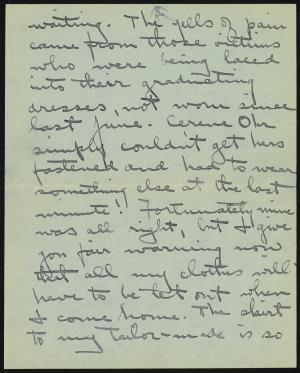 waiting. The yells of pain
came from those victims
who were being laced
into their graduating
dresses, not worn since
last June. Cerene Ohr
simply couldn't get hers
fastened and had to wear
something else at the last
minute! Fortunately mine
was all right, but I give
you fair warning now
that all my clothes will
have to be let out when
I come home. The skirt
to my tailor-made is so